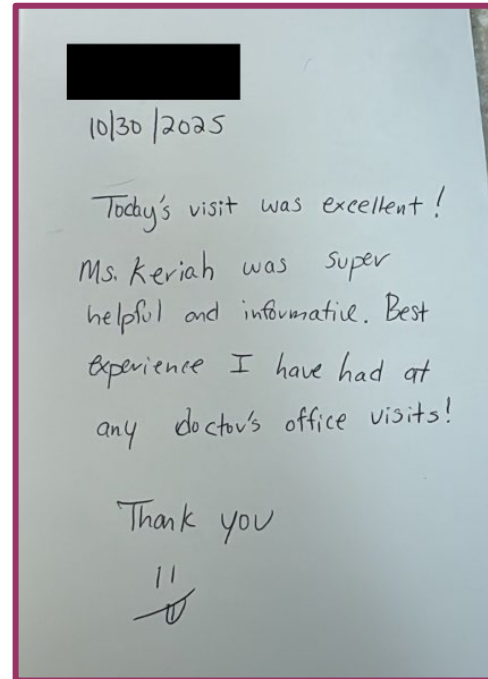 10/30/2025
Today's visit was excellent!
Ms. Keriah was super
helpful and informative. Best
experience I have had at
any doctor's office visits!
Thank you